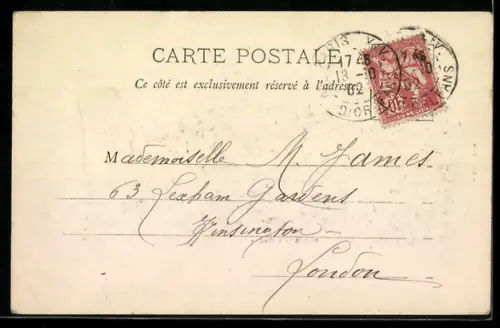 CARTE POSTALE
Ce côté est exclusivement réservé à l'adresse
17 10
18 -10
02
Mademoiselle M. James
63 Lexham Gardens
Kensington
London